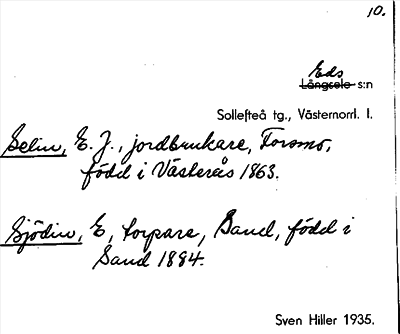 10.
Eds
Långsele s:n
Sollefteå tg., Västernorrl. l.
Selin, E. J., jordbrukare, Forsmo,
född i Västerås 1863.
Sjödin, E, torpare, Sand, född i
Sand 1884.
Sven Hiller 1935.